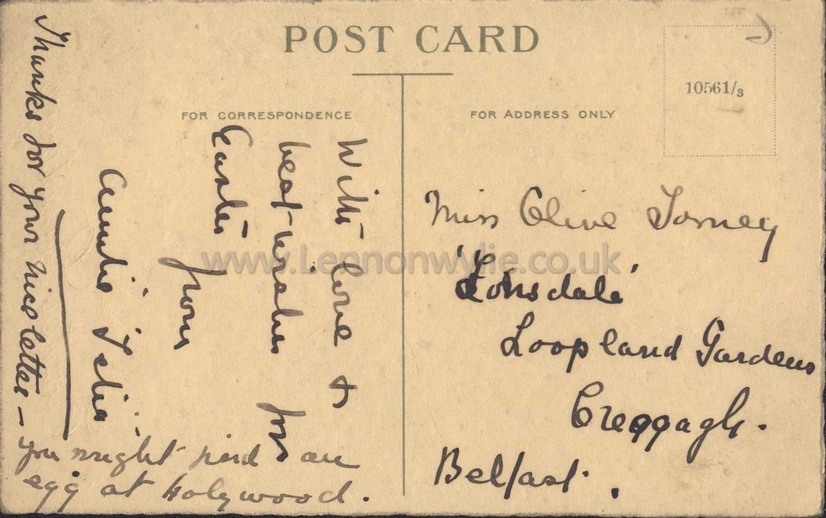 POST CARD
10561/3
FOR CORRESPONDENCE
FOR ADDRESS ONLY
With love &
best wishes for
Easter
from
Auntie
Thanks for your nice letter –
you might find an
egg at Holywood.
Miss Olive Torney
'Lonsdale'
Loopland Gardens
Cregagh.
Belfast.
www.Lennonwylie.co.uk